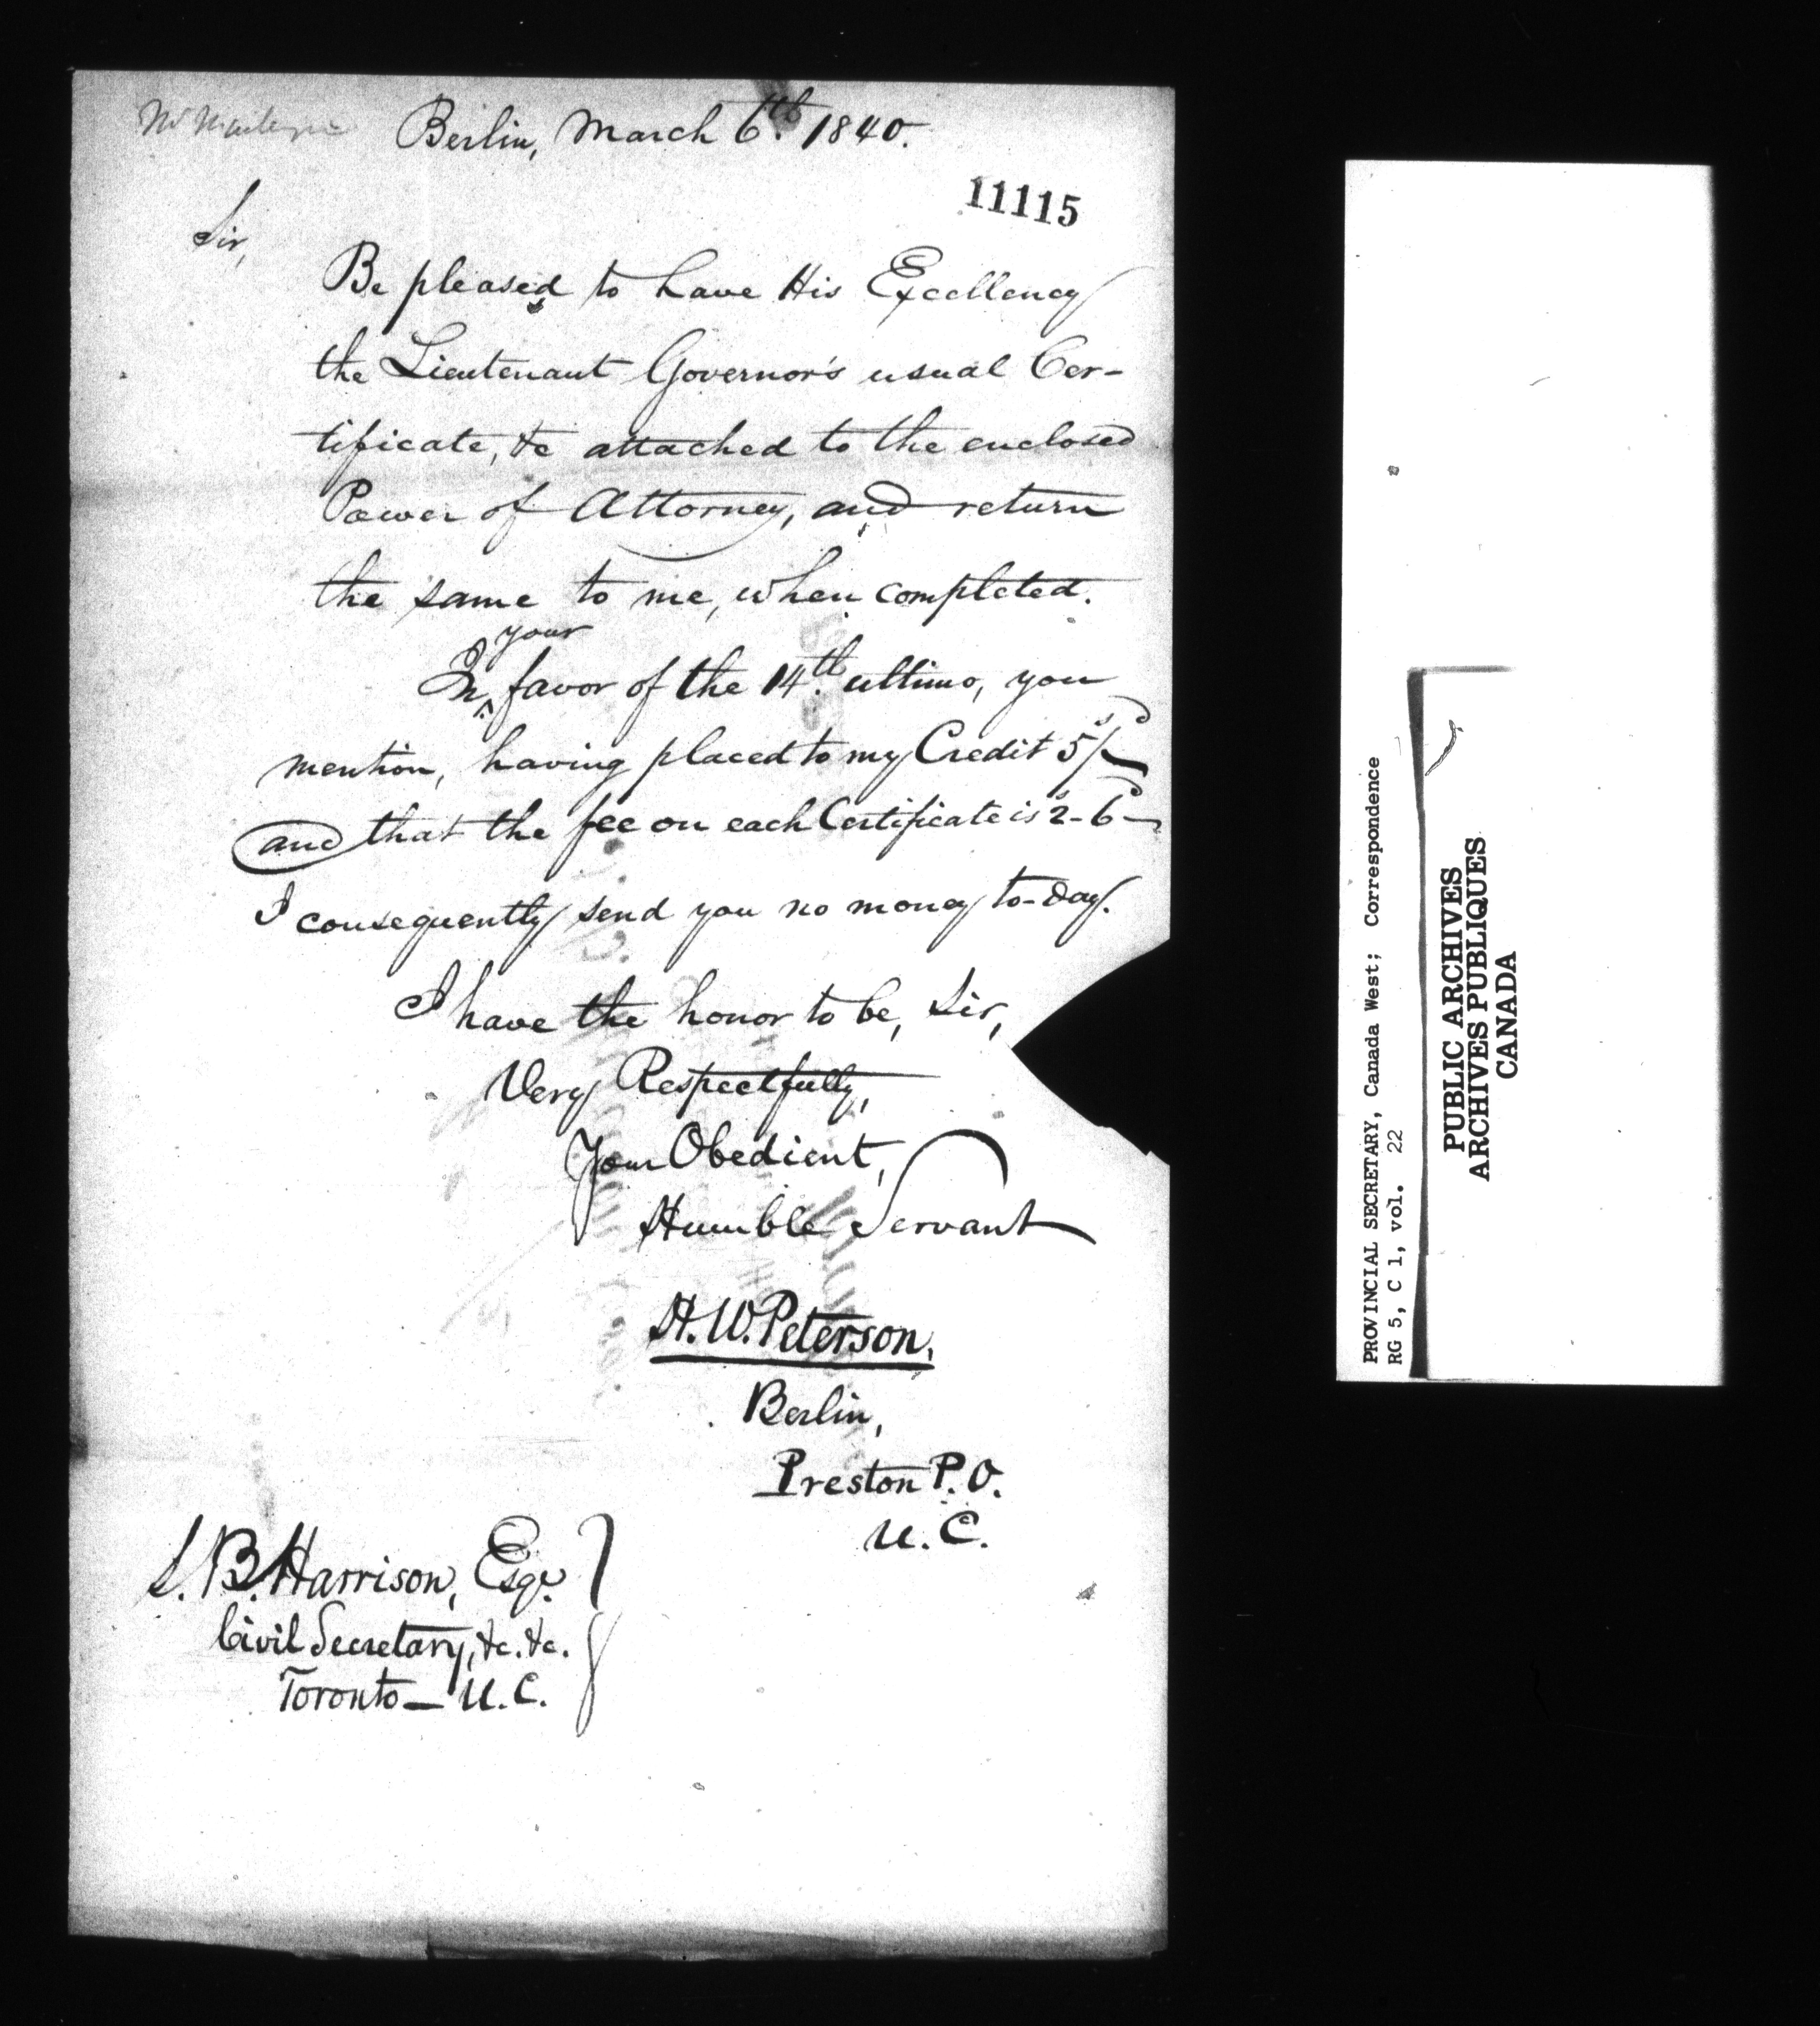 Berlin, March 6th. 1840.
11115
Sir,
Be pleased to have His Excellency
the Lieutenant Governor's usual Cer-
tificate, &c attached to the enclosed
Power of Attorney, and return
the same to me, when completed.
your
In favor of the 14th. ultimo, you
mention, having placed to my Credit 5s/
and that the fee on each Certificate is 2s-6
I consequently send you no money to-day.
I have the honor to be, Sir,
Very Respectfully,
Your Obedient,
Humble Servant
H.W. Peterson.
Berlin,
Preston P.O.
U.C.
S. B. Harrison, Esqr.
Civil Secretary, &c. &c.
Toronto — U.C.
PROVINCIAL SECRETARY, Canada West; Correspondence
RG 5, C 1, vol. 22
PUBLIC ARCHIVES
ARCHIVES PUBLIQUES
CANADA